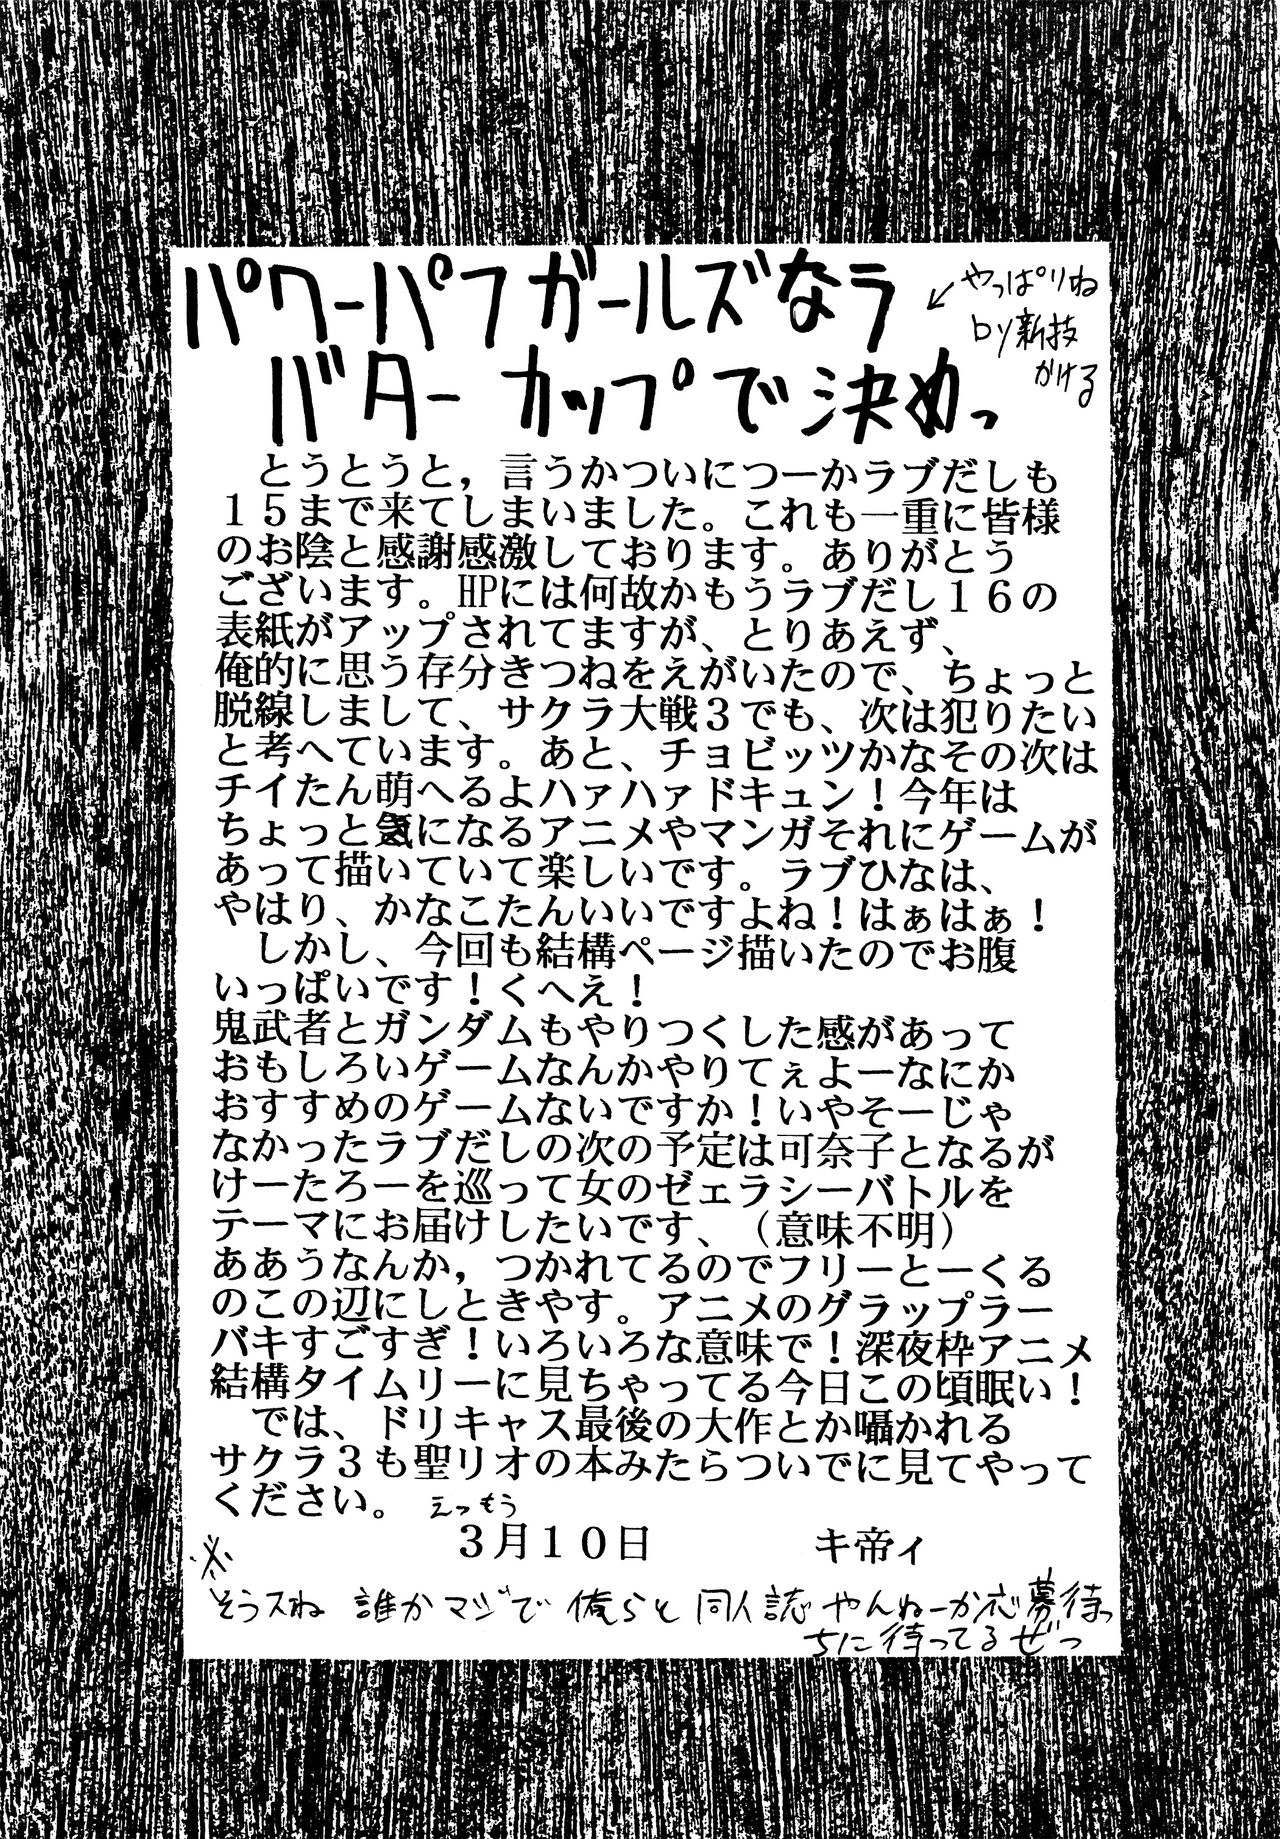 パワーパフガールズなラ
バターカップで決めっ
←やっぱりね
by新技
かける
とうとうと，言うかついにつーかラブだしも
１５まで来てしまいました。これも一重に皆様
のお陰と感謝感激しております。ありがとう
ございます。HPには何故かもうラブだし１６の
表紙がアップされてますが、とりあえず、
俺的に思う存分きつねをえがいたので、ちょっと
脱線しまして、サクラ大戦３でも、次は犯りたい
と考へています。あと、チョビッツかなその次は
チイたん萌へるよハァハァドキュン！今年は
ちょっと気になるアニメやマンガそれにゲームが
あって描いていて楽しいです。ラブひなは、
やはり、かなこたんいいですよね！はぁはぁ！
しかし、今回も結構ページ描いたのでお腹
いっぱいです！くへえ！
鬼武者とガンダムもやりつくした感があって
おもしろいゲームなんかやりてぇよーなにか
おすすめのゲームないですか！いやそーじゃ
なかったラブだしの次の予定は可奈子となるが
けーたろーを巡って女のゼェラシーバトルを
テーマにお届けしたいです、（意味不明）
ああうなんか，つかれてるのでフリーとーくる
のこの辺にしときやす。アニメのグラップラー
バキすごすぎ！いろいろな意味で！深夜枠アニメ
結構タイムリーに見ちゃってる今日この頃眠い！
では、ドリキャス最後の大作とか囁かれる
サクラ３も聖リオの本みたらついでに見てやって
ください。えっもう
３月１０日　キ帝ィ
※
そうスね 誰かマジで 俺らと 同人誌 やんねーか応募待っ
ちに待ってるぜっ